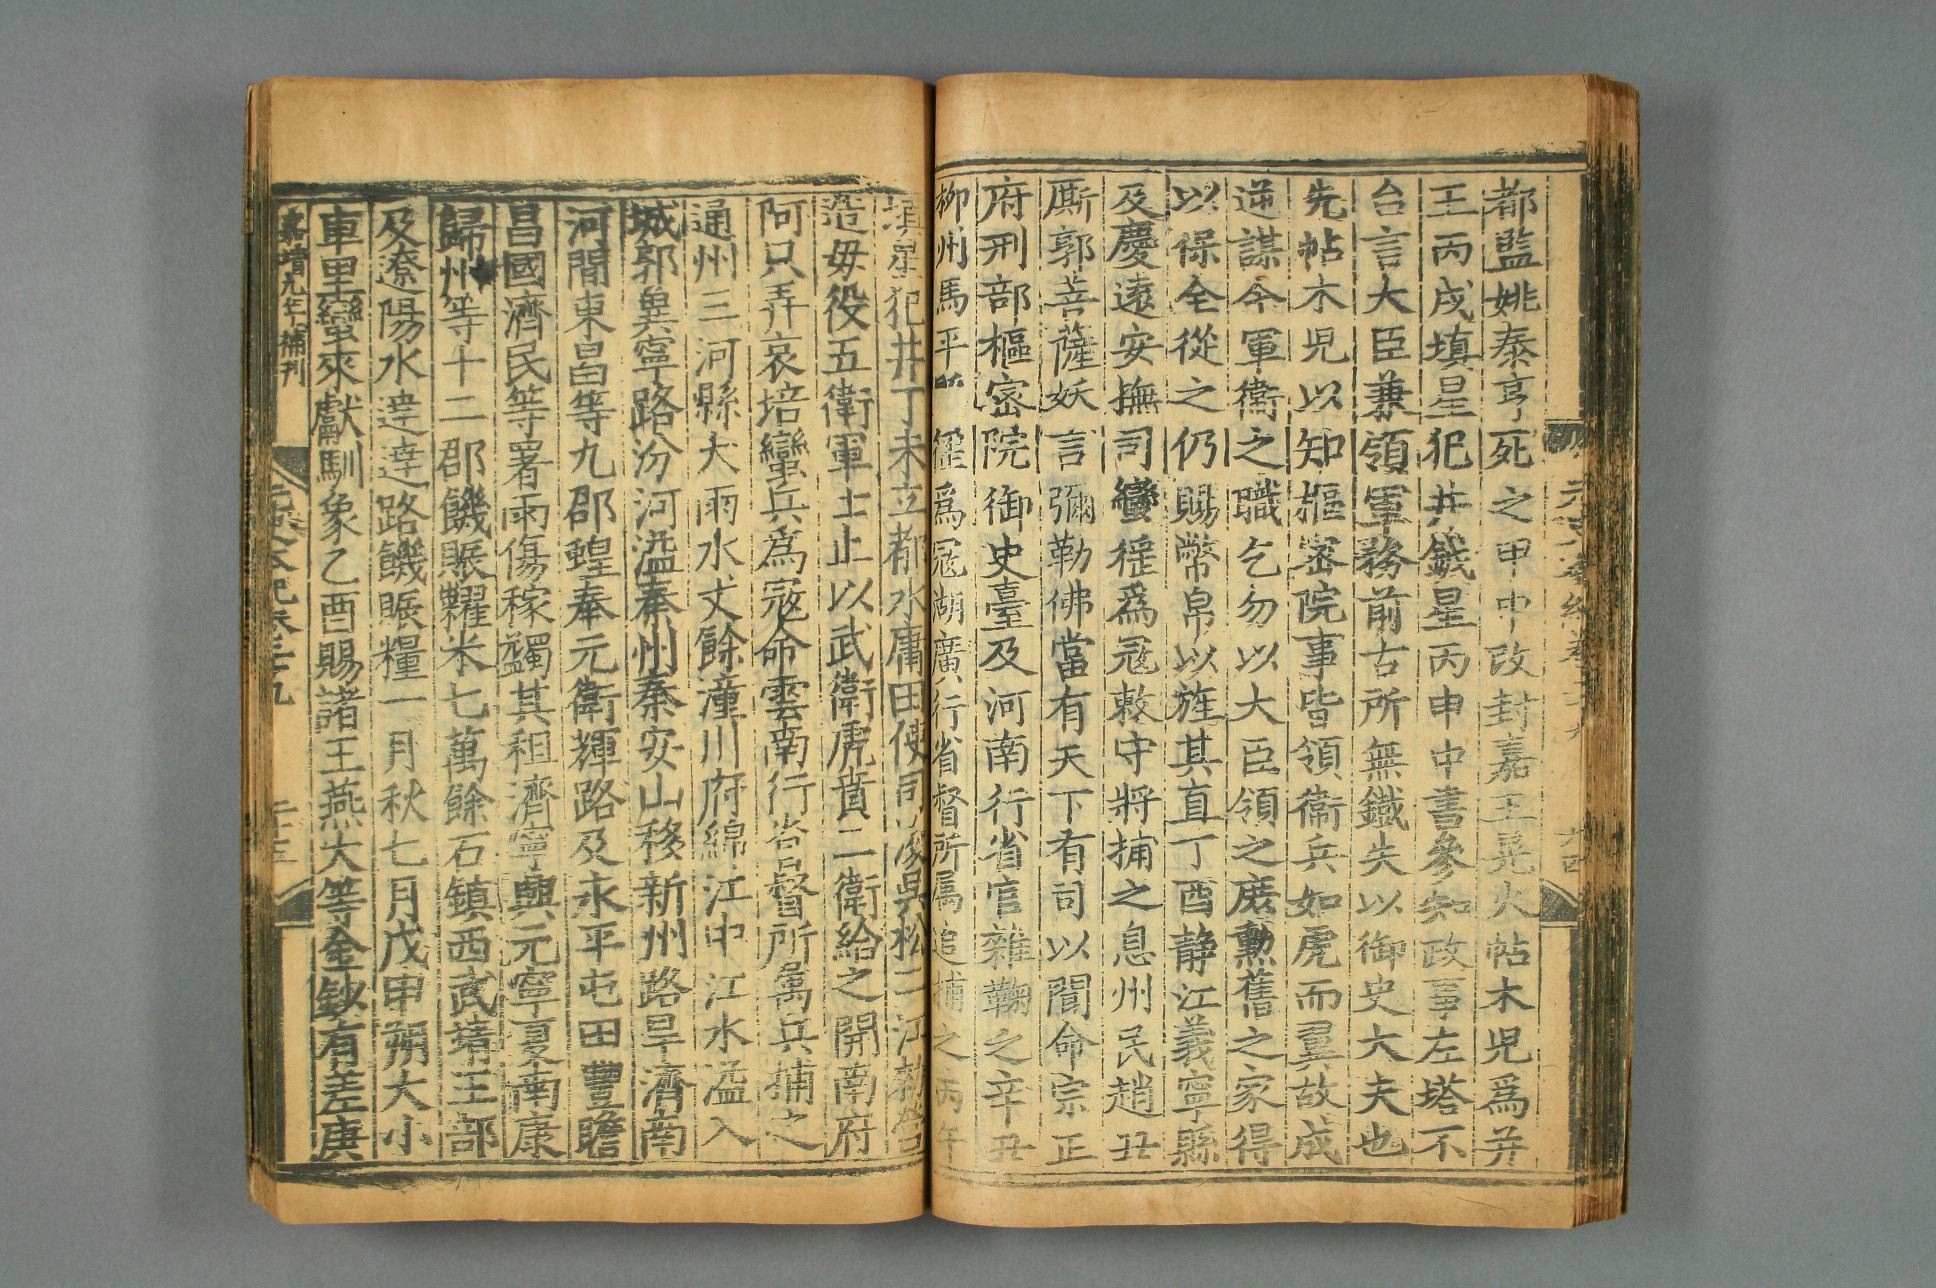 都監姚泰亨死之甲申改封嘉王晃火帖木児為并
王丙戌填星犯井鉞星丙申中書參知政事左塔不
台言大臣兼領軍務前古所無鐵失以御史大夫也
先帖木児以知樞密院事皆領衞兵如虎而翼故成
逆謀今軍衞之職乞勿以大臣領之庶勲舊之家得
以保全從之仍賜幣帛以旌其直丁酉静江義寧縣
及慶遠安撫司蠻徭為冦敕守將捕之息州民趙丑
厮郭菩薩妖言彌勒佛當有天下有司以聞命宗正
府刑部樞密院御史臺及河南行省官雜鞫之辛丑
柳州馬平縣徭為冦湖廣行省督所属追捕之丙午
填星犯井丁未立都水庸田使司浚吳松二江
造毋役五衛軍士止以武衛虎賁二衛給之開南府
阿只弄哀培蠻兵為寇命雲南行省督所属兵捕之
通州三河縣大雨水丈餘潼川府綿江中江水溢入
城郭兾寧路汾河溢秦州秦安山移新州路旱濟南
河間東昌等九郡蝗奉元衛輝路及永平屯田豐贍
昌國濟民等署雨傷稼蠲其租濟寧興元寧夏南康
歸州等十二郡饑賑糶米七萬餘石鎮西武靖王部
及遼陽水達達路饑賑糧一月秋七月戊申朔大小
車里蠻來獻馴象乙酉賜諸王燕大等金鈔有差庚
嘉靖九年補刊
元史本紀卷二十九
二十三